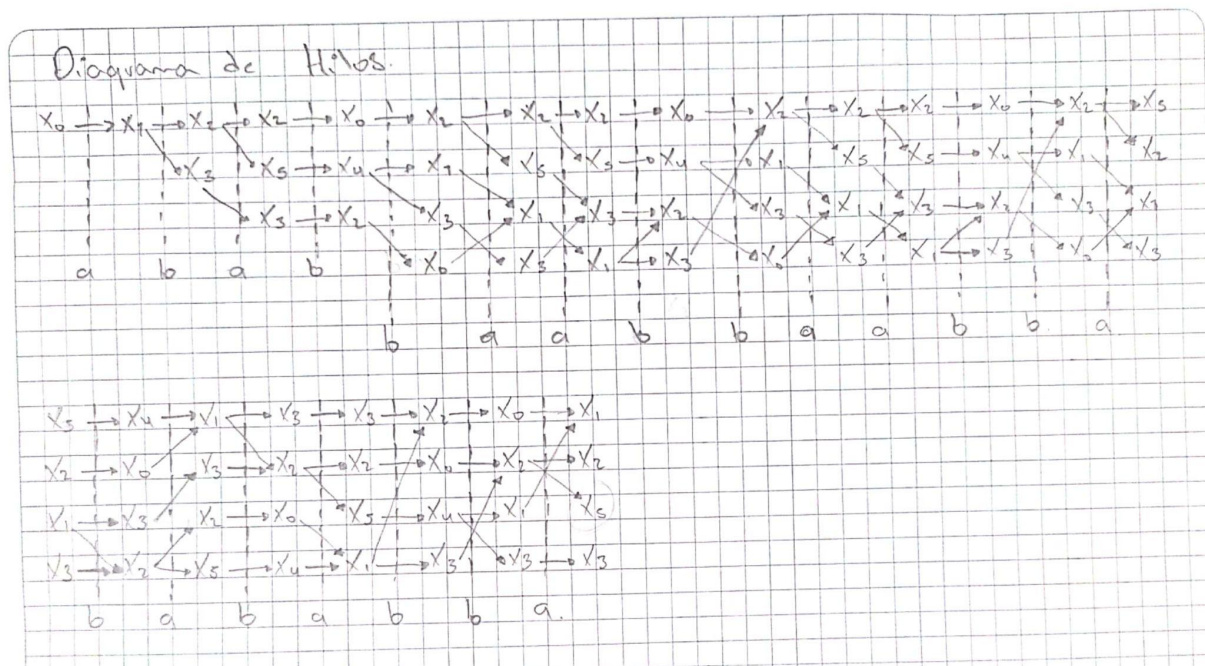 Diagrama de Hilos.
X₀ X₁ X₂ X₂ X₀ X₂ X₂ X₂ X₀ X₂ X₂ X₂ X₀ X₂ X₅
X₃ X₅ X₄ X₁ X₅ X₅ X₄ X₁ X₅ X₅ X₄ X₁ X₂
X₃ X₂ X₃ X₁ X₃ X₂ X₃ X₁ X₃ X₂ X₃
X₀ X₃ X₁ X₃ X₀ X₃ X₁ X₃ X₀ X₃
a b a b
b a a b b a a b b. a
X₅ X₄ X₁ X₃ X₃ X₂ X₀ X₁
X₂ X₀ X₃ X₂ X₂ X₀ X₂ X₂
X₁ X₃ X₂ X₀ X₅ X₄ X₁ X₅
X₃ X₂ X₅ X₄ X₁ X₃ X₃ X₃
b a b a b b a.